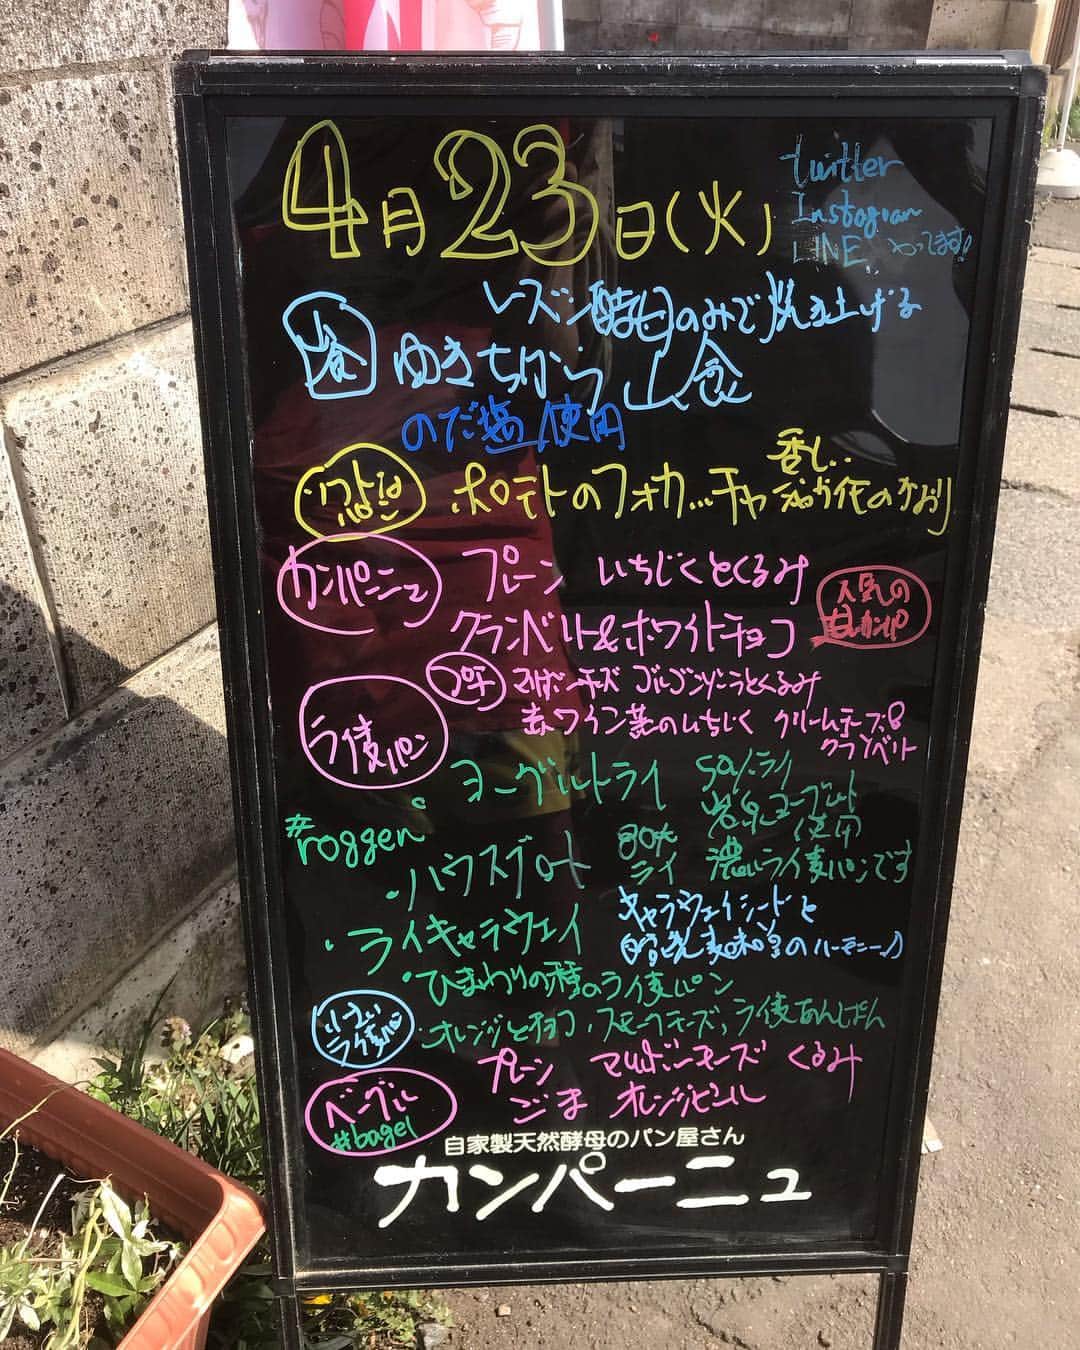 4月23日(火)
twitter
Instagram
LINE やってます!
レーズン酵母のみで焼き上げる
山食
ゆきちから山食
のだ塩使用
ソフトなパン
ポテトのフォカッチャ
香り
花のかおり
カンパーニュ
プレーン いちじくとくるみ
クランベリー&ホワイトチョコ
人気の
甘いカンパ
プチ マリボーチーズ ゴルゴンゾーラとくるみ
赤ワイン煮のいちじく クリームチーズ&
クランベリー
ライ麦パン
#roggen
・ヨーグルトライ 50%ライ
岩泉ヨーグルト
使用
・ハウスブロート 80%
ライ 濃いライ麦パンです
・ライキャラウェイ キャラウェイシードと
自家製 味噌のハーモニー♪
・ひまわりの種のライ麦パン
ライ麦パン
・オレンジとチョコ、スモークチーズ、ライ麦あんぱん
ベーグル
#bagel
プレーン マリボーチーズ くるみ
ごま オレンジピール
自家製天然酵母のパン屋さん
カンパーニュ